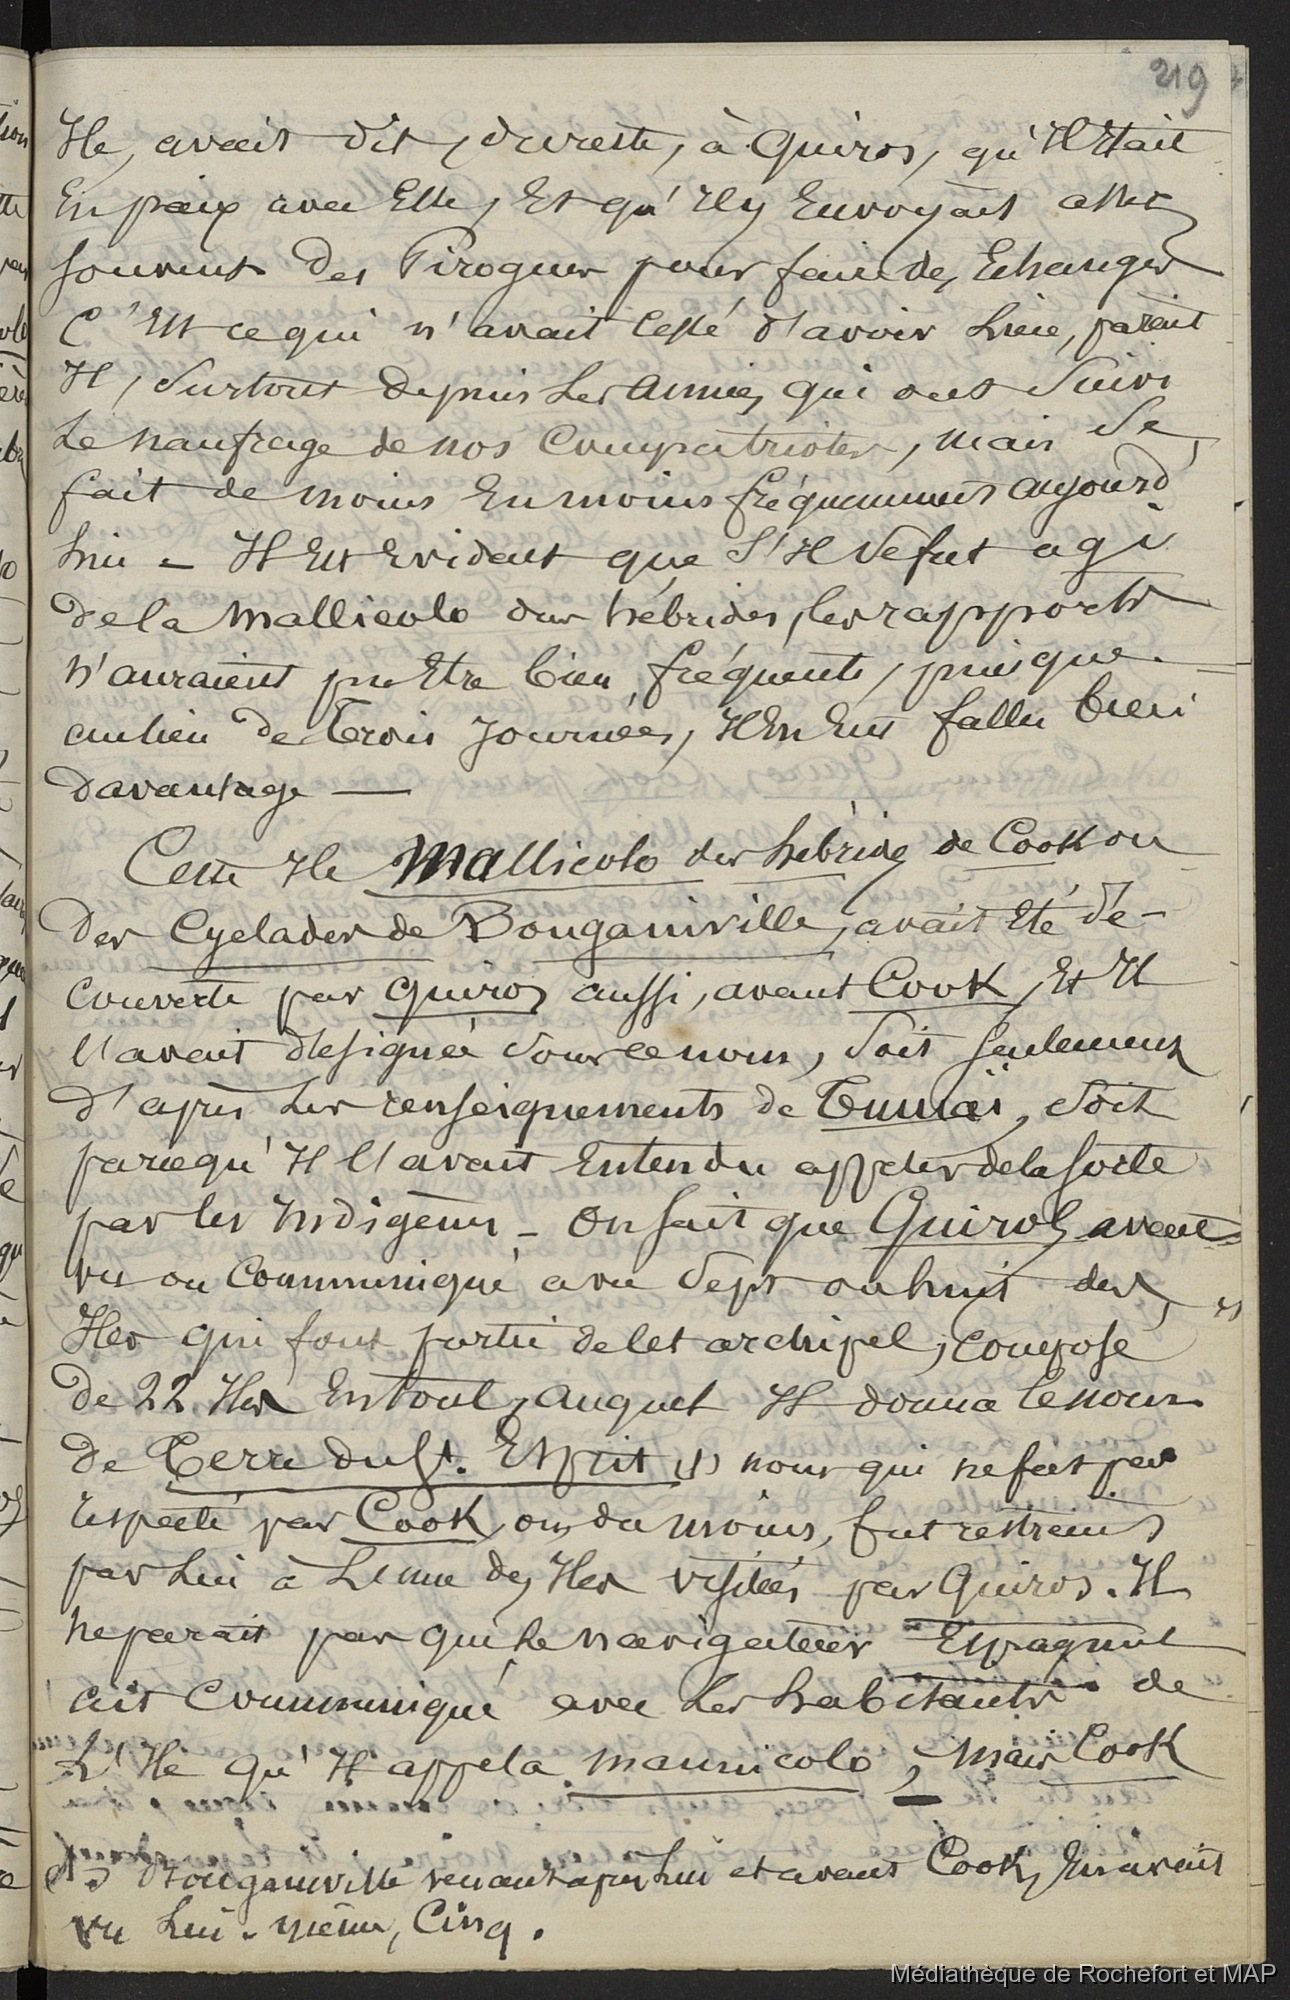 219
Ile, avait dit, dureste, à Quiros, qu'Il était
En paix avec Elle, Et qu'Il y Envoyait assez
souvent des Pirogues pour faire des Echanges
C'Est ce qui n'avait cessé d'avoir lieu, parait
Il, surtout depuis les années qui ont suivi
le naufrage de nos Compatriotes, mais se
fait de moins En moins fréquemment aujourd'
hui - Il Est Evident que s'Il se fut agi
de la Mallicolo des hébrides, les rapports
n'auraient pu Etre bien fréquents, puisque
au lieu de Trois Journées, Il En Eut fallu bien
davantage —
Cette Ile Mallicolo des hébrides de Cook ou
Des Cyclades de Bougainville, avait Eté dé-
couverte par Quiros aussi, avant Cook, Et Il
l'avait désignée sous ce nom, soit seulement
d'après les renseignements de Tumaï, soit
parcequ'Il l'avait Entendu appeler de la sorte
par les Indigènes - On sait que Quiros avait
vu ou Communiqué avec sept ou huit des
Iles qui font partie de cet archipel, composé
de 22 Iles En tout, auquel Il donna le nom
de Terre du St. Esprit (1) nom qui ne fut pas
respecté par Cook, ou, du moins, fut restreint
par Lui à L'une des Iles visitées par Quiros. Il
ne parait pas que le navigateur Espagnol
ait Communiqué avec les habitants de
L'Ile qu'Il appela mannicolo, mais Cook
(1) Bougainville venant après Lui et avant Cook, En avait
vu Lui-même, Cinq.
Médiathèque de Rochefort et MAP